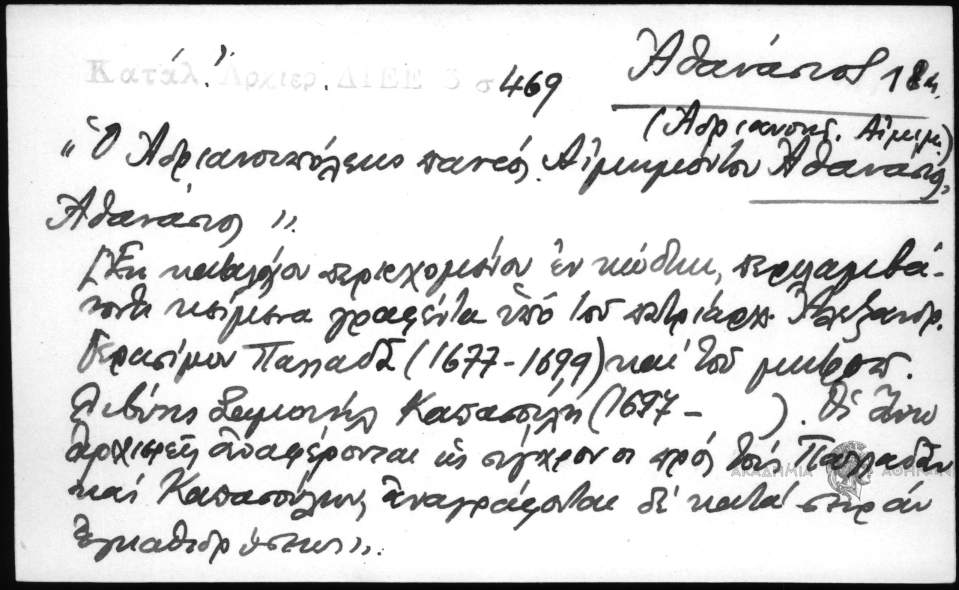 Κατάλ. Ἀρχιερ. ΔΙΕΕ 3 σ 469
Ἀθανάσιος 18
(Ἀδριανουπ. Αἱμιμ.)
"Ὁ Ἀδριανουπόλεως παντός Αἱμιμόντου Ἀθανάσιος,
Ἀθανάσιος".
[Ἐκ καταλόγου περιεχομένου ἐν κώδικι, περιλαμβά-
νοντι κείμενα γραφέντα ὑπό τοῦ πατριάρχ. Ἀλεξανδρ.
Γερασίμου Παλλαδᾶ (1677-1699) καί τοῦ μητροπ.
Λιβύης Σαμουήλ Καπασούλη (1697- ). Οἱ ἐν
ἀρχιερεῖς ἀναφέρονται ὡς σύγχρονοι πρός τούς Παλλαδᾶν
καί Καπασούλην, ἀναγράφονται δέ κατά σειράν
ἐγκαθιδρύσεως".
ΑΚΑΔΗΜΙΑ ΑΘΗΝΩΝ